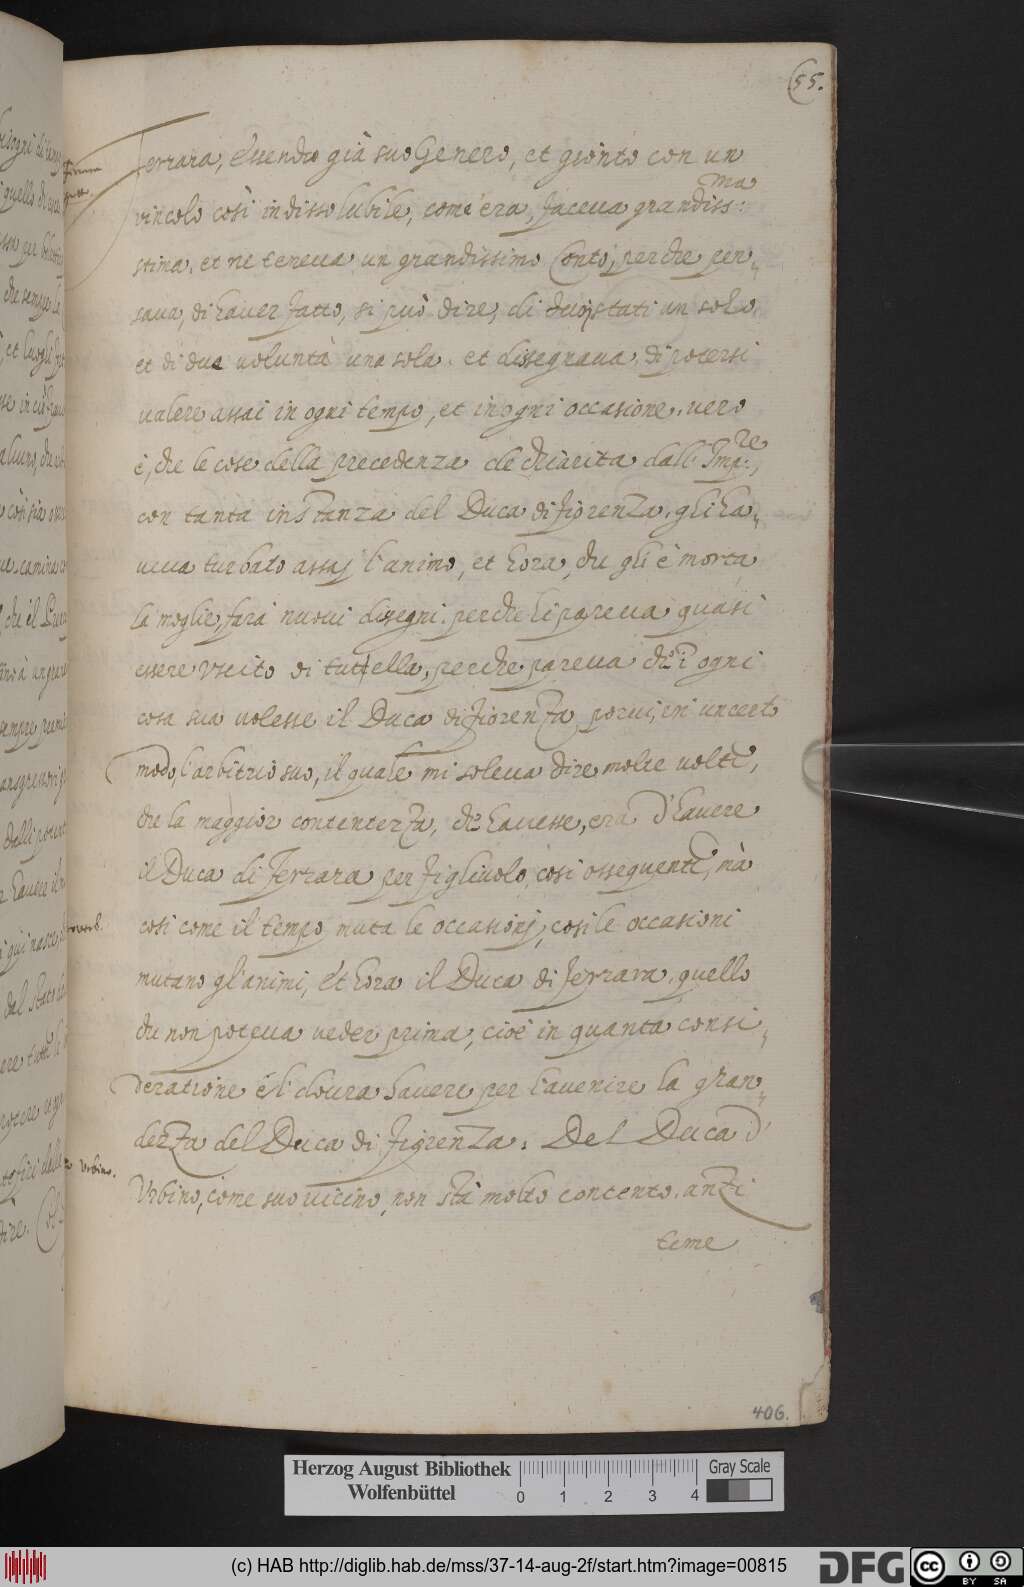 55.
Ferrara, essendo già suo Genero, et gionto con un
vincolo così indissolubile, come era, faceua grandiss:ma
stima, et ne teneua un grandissimo Conto, perche pen,,
saua, di hauer fatto, si può dire, di duoi stati un solo,
et di due uoluntà una sola, et dissegnaua, di potersi
ualere assai in ogni tempo, et in ogni occasione, uero
è, che le cose della precedenza dechiarita dall' Imp:re,
con tanta instanza del Duca di fiorenza, gli ha,,
ueua turbato assaj l'animo, et hora, che gli è morta
la moglie, farà nuoui disegni, perche li pareua quasi
essere vscito di tuttella, perche pareua ch' ogni
cosa sua uolesse il Duca di fiorenza porui, in un certo
modo, l'arbitrio suo, il quale mi soleua dire molte uolte,
che la maggior contentezza, che hauesse, era d'hauere
il Duca di Ferrara per figliuolo, così ossequente, mà
così come il tempo muta le occasionj, cosi le occasioni
mutano gl'animi, et hora il Duca di Ferrara, quello
che non poteua ueder prima, cioè in quanta consi,,
deratione è li doura hauere per l'auenire la gran,,
dezza del Duca di Fiorenza. Del Duca d'
Vrbino.
Vrbino, come suo uicino, non stà molto contento, anzi
teme
406.
Herzog August Bibliothek
Wolfenbüttel
0 1 2 3 4
Gray Scale
(c) HAB http://diglib.hab.de/mss/37-14-aug-2f/start.htm?image=00815
DFG
cc BY SA